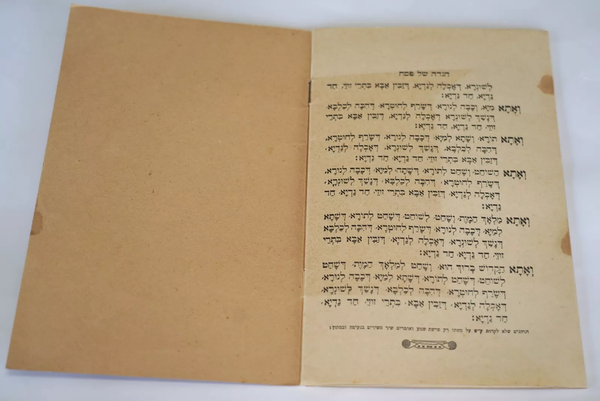 הגדה של פסח
לְשׁוּנְרָא. דְּאָכְלָה לְגַדְיָא. דְּזַבִּין אַבָּא בִּתְרֵי זוּזֵי. חַד
גַּדְיָא. חַד גַּדְיָא:
וְאָתָא מַיָּא. וְכָבָה לְנוּרָא. דְּשָׂרַף לְחוּטְרָא. דְּהִכָּה לְכַלְבָּא.
דְּנָשַׁךְ לְשׁוּנְרָא. דְּאָכְלָה לְגַדְיָא. דְּזַבִּין אַבָּא בִּתְרֵי
זוּזֵי. חַד גַּדְיָא. חַד גַּדְיָא:
וְאָתָא תוֹרָא. וְשָׁתָא לְמַיָּא. דְּכָבָה לְנוּרָא. דְּשָׂרַף לְחוּטְרָא.
דְּהִכָּה לְכַלְבָּא. דְּנָשַׁךְ לְשׁוּנְרָא. דְּאָכְלָה לְגַדְיָא.
דְּזַבִּין אַבָּא בִּתְרֵי זוּזֵי. חַד גַּדְיָא. חַד גַּדְיָא:
וְאָתָא הַשּׁוֹחֵט. וְשָׁחַט לְתוֹרָא. דְּשָׁתָה לְמַיָּא. דְּכָבָה לְנוּרָא.
דְּשָׂרַף לְחוּטְרָא. דְּהִכָּה לְכַלְבָּא. דְּנָשַׁךְ לְשׁוּנְרָא.
דְּאָכְלָה לְגַדְיָא. דְּזַבִּין אַבָּא בִּתְרֵי זוּזֵי. חַד גַּדְיָא. חַד
גַּדְיָא:
וְאָתָא מַלְאַךְ הַמָּוֶת. וְשָׁחַט לְשׁוֹחֵט. דְּשָׁחַט לְתוֹרָא. דְּשָׁתָא
לְמַיָּא. דְּכָבָה לְנוּרָא. דְּשָׂרַף לְחוּטְרָא. דְּהִכָּה לְכַלְבָּא
דְּנָשַׁךְ לְשׁוּנְרָא. דְּאָכְלָה לְגַדְיָא. דְּזַבִּין אַבָּא בִּתְרֵי
זוּזֵי. חַד גַּדְיָא. חַד גַּדְיָא:
וְאָתָא הַקָּדוֹשׁ בָּרוּךְ הוּא. וְשָׁחַט לְמַלְאַךְ הַמָּוֶת. דְּשָׁחַט
לְשׁוֹחֵט. דְּשָׁחַט לְתוֹרָא. דְּשָׁתָא לְמַיָּא. דְּכָבָה לְנוּרָא.
דְּשָׂרַף לְחוּטְרָא. דְּהִכָּה לְכַלְבָּא. דְּנָשַׁךְ לְשׁוּנְרָא.
דְּאָכְלָה לְגַדְיָא. דְּזַבִּין אַבָּא בִּתְרֵי זוּזֵי. חַד גַּדְיָא.
חַד גַּדְיָא:
שלא לקרות ק״ש על מטתו רק פרשת שמע ואומרים שיר השירים בנעימה